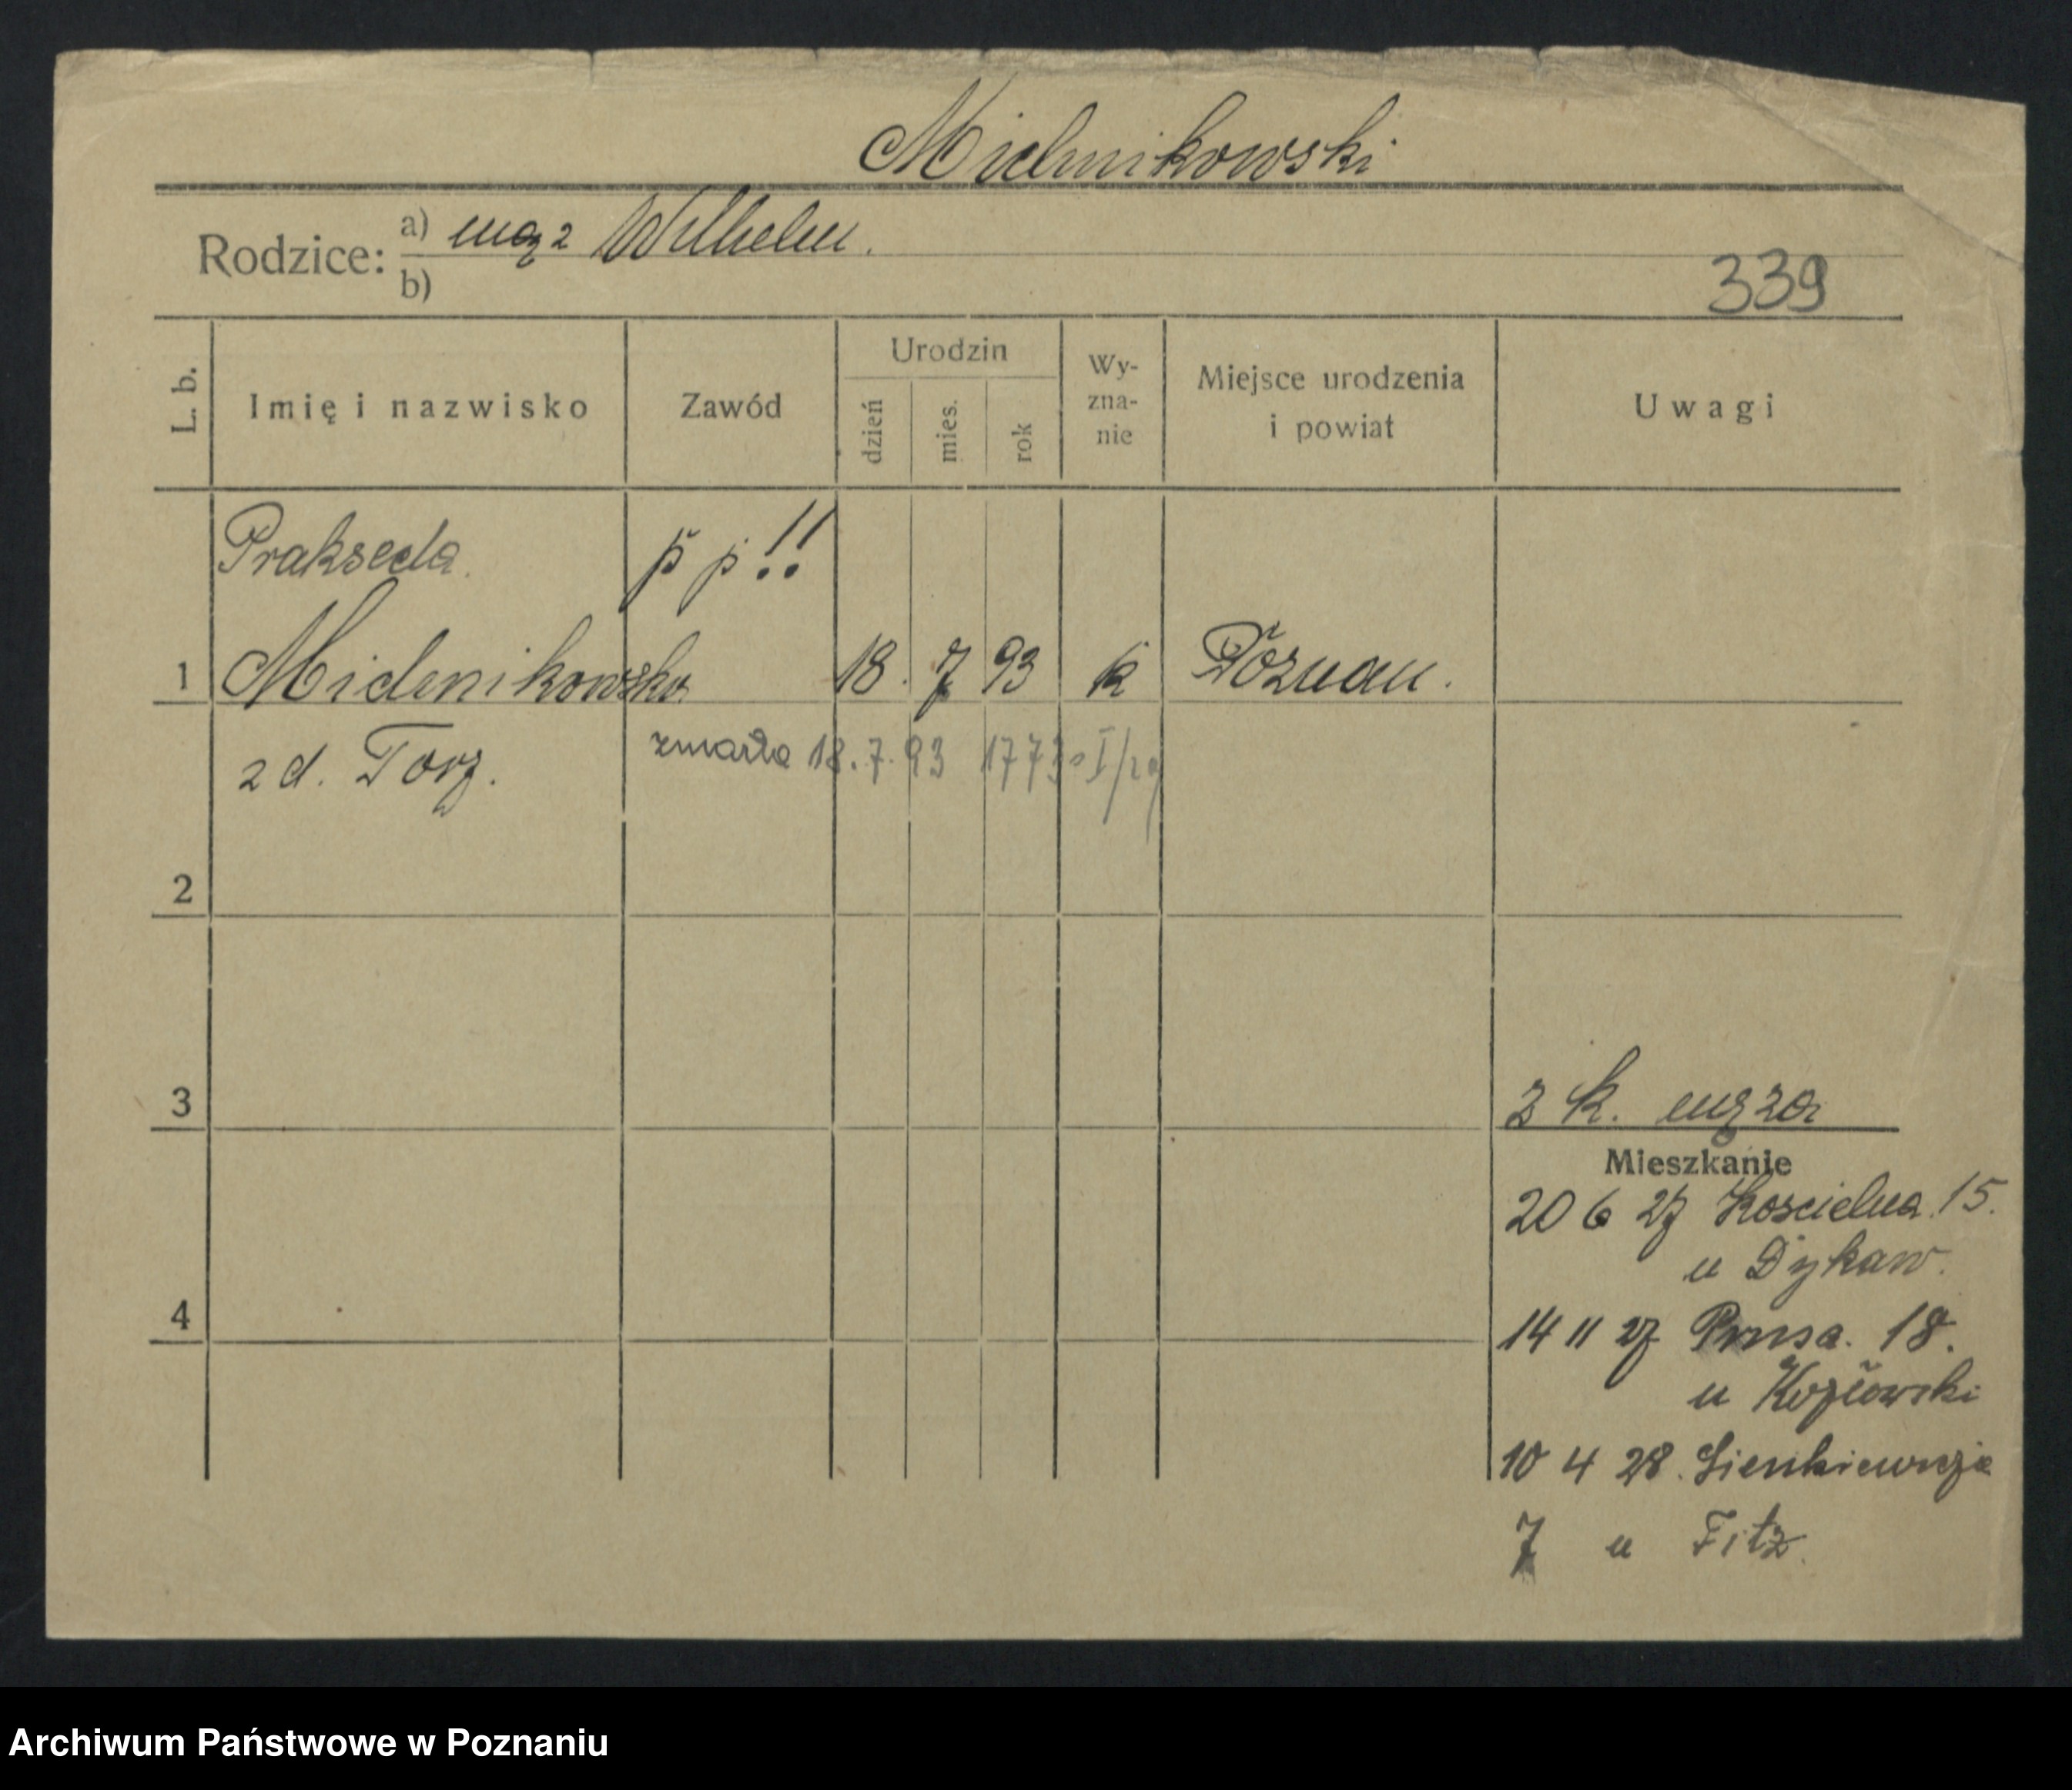 Mielnikowski
Rodzice: a) mąż Wilhelm.
b)
339
L. b. Imię i nazwisko Zawód Urodzin dzień mies. rok Wy-zna-nie Miejsce urodzenia i powiat Uwagi
Prakseda p p!!
1 Mielnikowska 18. 7 93 k Poznań.
z d. Torz. zmarła 18.7.93
2
3 z k. męża
Mieszkanie
20 6 27 Kościelna 15.
u Dykaw.
4 14 11 27 Prusa. 18.
u Kozłowski
10 4 28. Sienkiewicza
7 u Fitz.
Archiwum Państwowe w Poznaniu